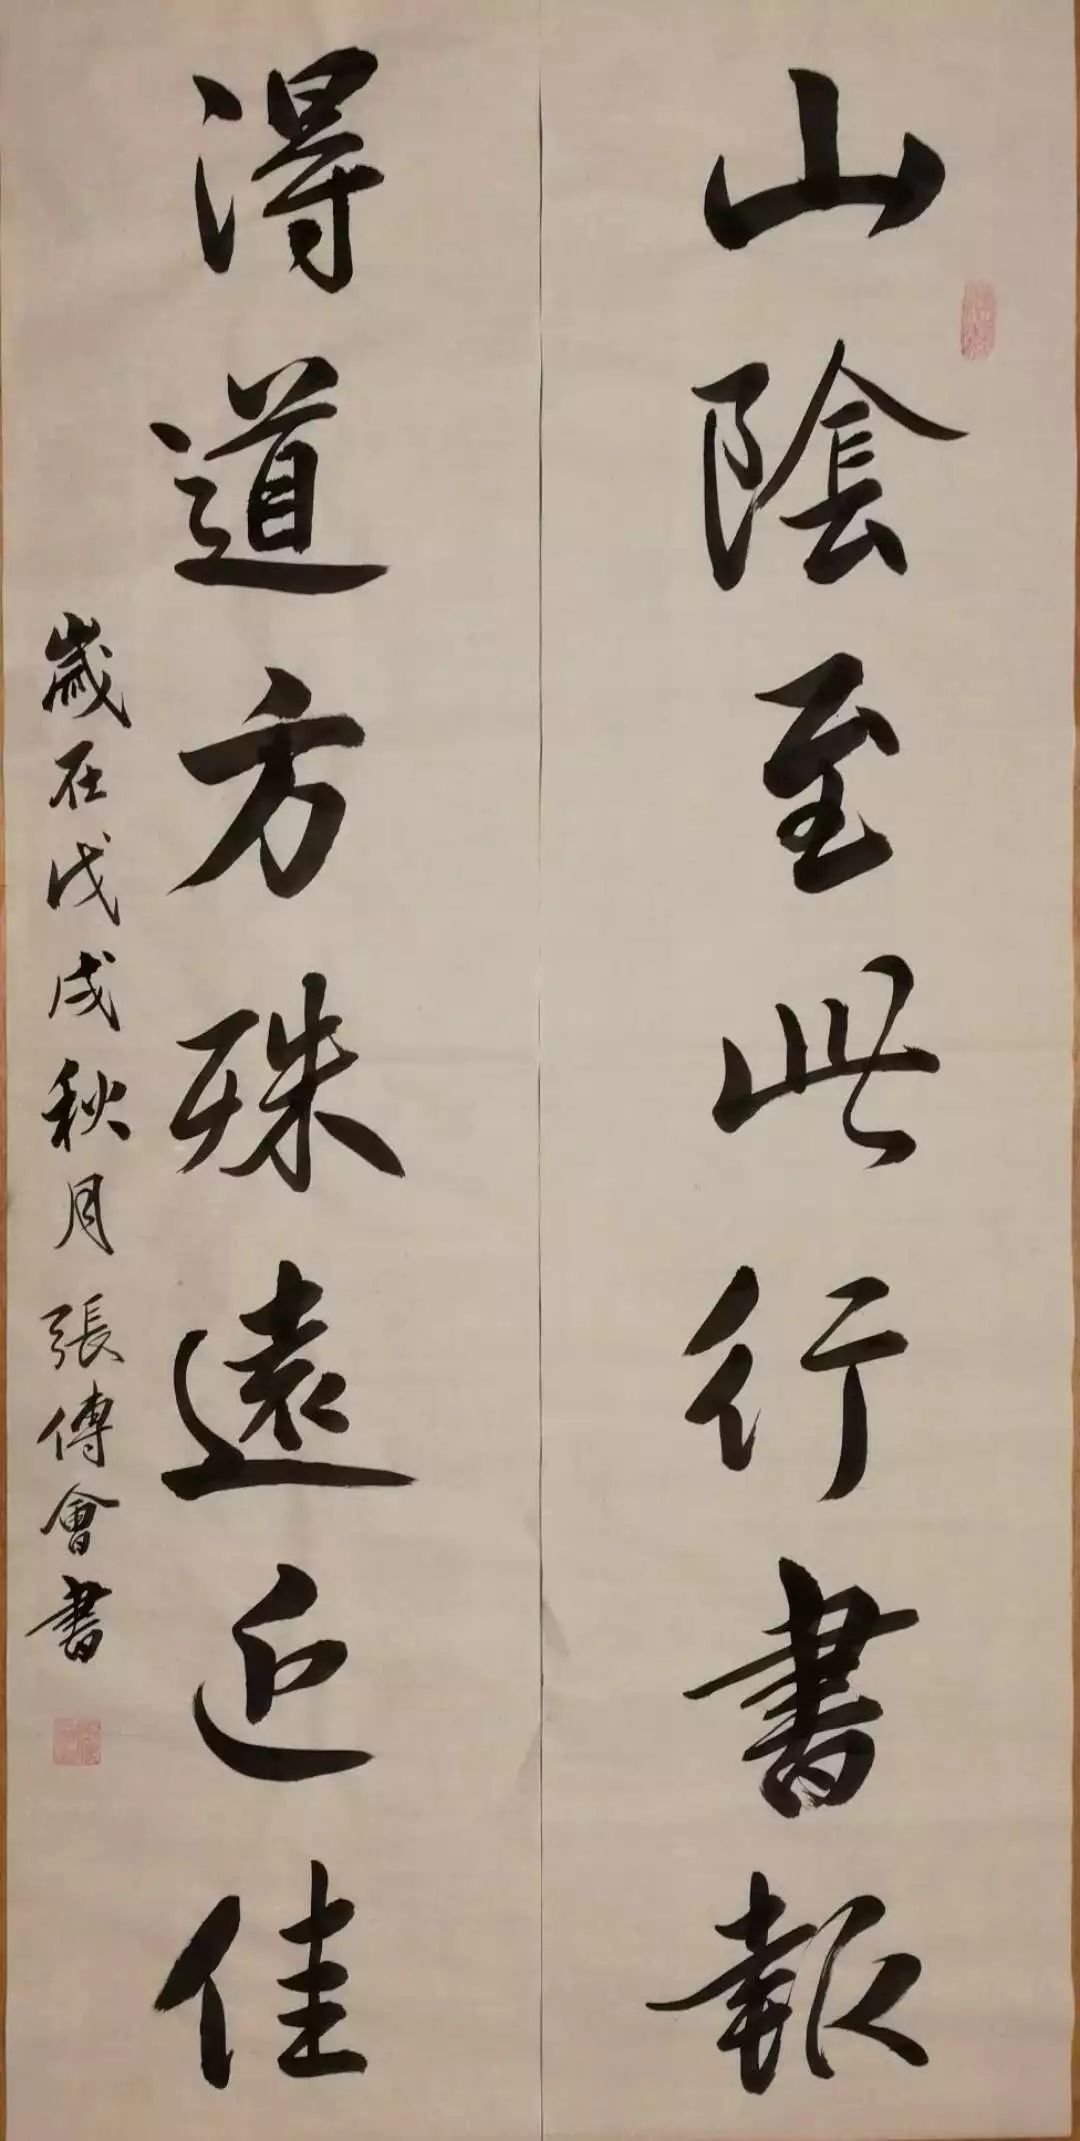 山陰至此行書報
得道方殊遠近佳
歲在戊戌秋月張傳會書